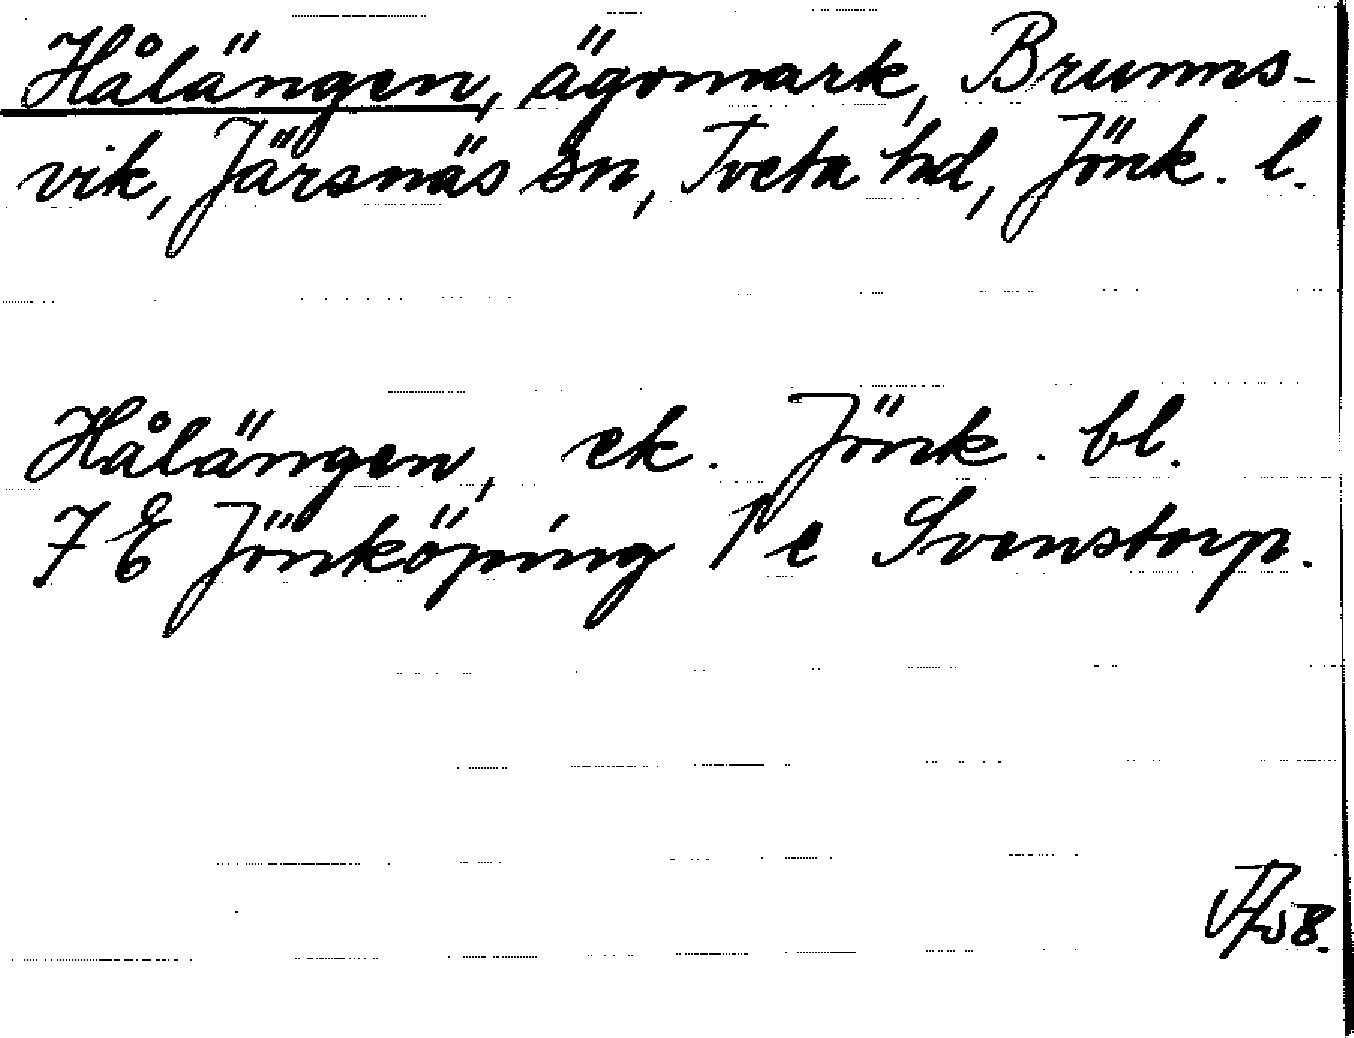 Hålängen, ägomark, Brunns-
vik, Järsnäs sn, Tveta hd, Jönk. l.
Hålängen, ek. Jönk. bl.
7 E Jönköping 1 e Svenstorp.
58.